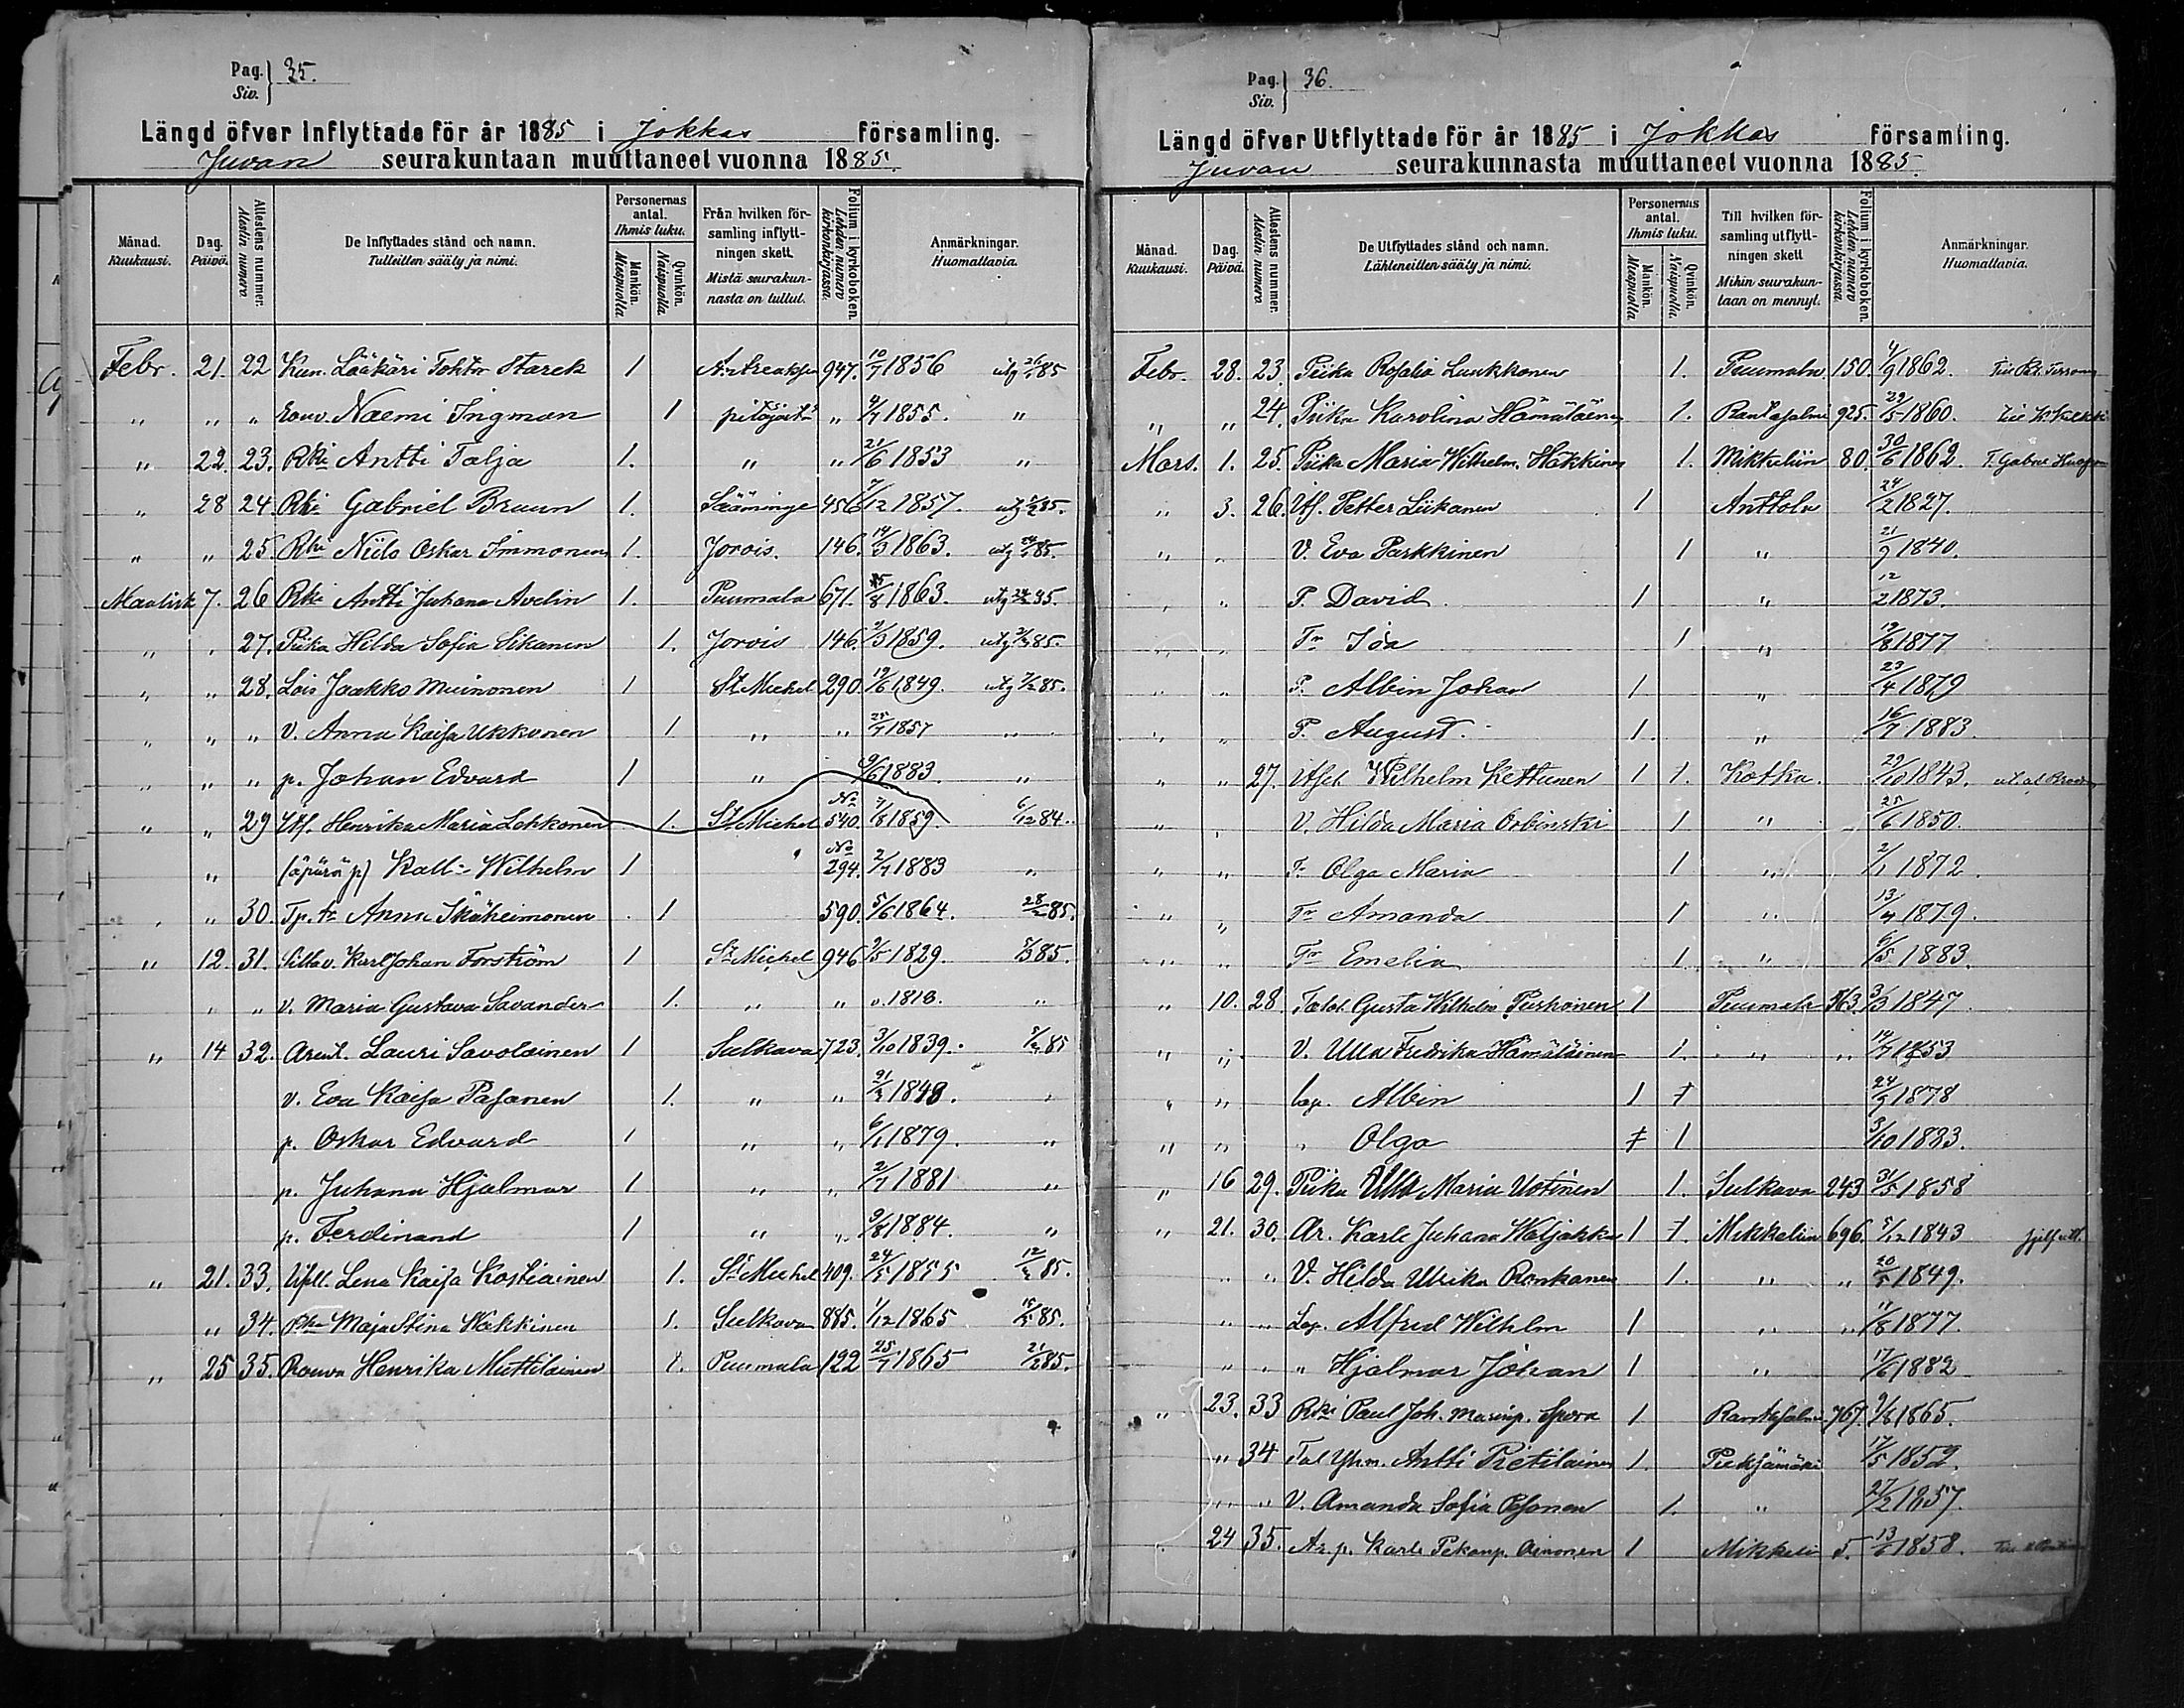 Pag. 35.
Siv.
Längd öfver Inflyttade för år 1885 i Jokkas församling.
Juvan seurakuntaan muuttaneet vuonna 1885.
Månad. Kuukausi.
Dag. Päivä.
Altestens nummer. Alistin numero
De Inflyttades stånd och namn. Tulleitten sääty ja nimi.
Personernas antal. Ihmis luku.
Mankön. Miespuolia
Qvinkön. Naispuolia.
Från hvilken församling inflyttningen skett. Mistä seurakunnasta on tullut.
Folium i kyrkoboken. Lehden numero kirkonkirjassa.
Anmärkningar. Huomattavia.
Febr. 21. 22 Kun. Lääkäri Tohtor Starck 1 Antreaksen 947. 10/7 1856 utg 26/1 85
" " " rouv. Naemi Ingman 1 pitäjästä " 4/7 1855. "
" 22. 23. Rki Antti Talja 1. " " 21/6 1853 "
" 28 24. Rki Gabriel Bruun 1. Sääminge 456 7/12 1857. utg 85.
" " 25. Rki Niilo Oskar Immonen 1. Jorois. 146. 14/3 1863. utg 85.
Maalisk 7. 26 Rki Antti Juhana Avelin 1. Puumala 671. /8 1863. utg 85.
" " 27. Piika Hilda Sofia Sikanen 1. Jorois 146. 2/3 1859. utg 85.
" " 28. Lois Jaakko Muinonen 1 St Michel 290. 19/6 1849. utg 7/2 85.
" " " v. Anna Kaisa Ukkonen 1 " " 25/7 1857 "
" " " p. Johan Edvard 1 " 9/6 1883. "
" " 29 Itf. Henrika Maria Lehkonen 1. St Michel No 540. 7/8 1859. 6/12 84.
" (äpärä p) Kalle Wilhelm 1 No 294. 2/7 1883 "
" " 30. Tp. tr Anna Ikäheimonen 1 590. 5/6 1864. 28/2 85.
" 12. 31. Karl Johan Forström 1 St Michel 946 9/5 1829. 85.
" " " v. Maria Gustava Savander 1. " " 1818. "
" 14 32. Arent. Lauri Savolainen 1 Sulkava 723. 3/10 1839. 85
v. Eva Kaisa Pasanen 1. " " 1849. "
p. Oskar Edvard 1 " " 6/1 1879. "
p. Juhana Hjalmar 1 " " 2/7 1881 "
p. Ferdinand 1 " " 9/8 1884. "
" 21. 33. Lena Kaisa Kostiainen 1. St Michel 409. 24/5 1855 12/2 85.
" 34. Pka Maja Stina Hakkinen 1. Sulkava 885. 1/12 1865 85.
" 25 35. Rouva Henrika Muttilainen 1. Puumala 122 25/7 1865 21/2 85.
Pag. 36.
Siv.
Längd öfver Utflyttade för år 1885 i Jokkas församling.
Juvan seurakunnasta muuttaneet vuonna 1885.
Månad. Kuukausi.
Dag. Päivä.
Altestens nummer. Alistin numero
De Utflyttades stånd och namn. Lähteneitten sääty ja nimi.
Personernas antal. Ihmis luku.
Mankön. Miespuolia
Qvinkön. Naispuolia.
Till hvilken församling utflyttningen skett Mihin seurakuntaan on mennyt.
Folium i kyrkoboken. Lehden numero kirkonkirjassa.
Anmärkningar. Huomattavia.
Febr. 28. 23. Piika Rosalia Luukkonen 1. Puumala. 150. 4/9 1862.
" " 24. Piika Karolina Hämäläinen 1. Rantasalmi 925. 29/5 1860.
Mars. 1. 25. Piika Maria Wilhelm. Häkkinen 1. Mikkeliin 80. 30/6 1862.
" 3. 26. Itf. Petter Liikanen 1 Anttola 24/2 1827.
" " V. Eva Parkkinen 1 " 21/9 1840.
" " P. David 1 " 12/2 1873.
" " Tr Ida 1 " 19/8 1877
" " P. Albin Johan 1 " 23/4 1879
" " P. August 1. " 16/7 1883.
" " 27. Itsel Wilhelm Kettunen 1 1. Kotka. 29/10 1843.
" " V. Hilda Maria Orbinski 1 " 25/6 1850.
" " Tr Olga Maria 1 " 2/1 1872.
" " Tr Amanda 1 " 13/4 1879.
" " Tr Emelia 1. " 6/5 1883.
" 10. 28. Talol. Gusta Wilhelm Purhonen 1 Puumala 863. 3/3 1847
" " V. Ulla Fredrika Hämäläinen 1. " " 14/7 1853
" " lap. Albin 1 1 24/9 1878
" " " Olga 1 1 3/10 1883.
" 16 29. Piika Ulla Maria Uotinen 1. Sulkava 243 31/5 1858
" 21. 30. Ar. Karle Juhana Waljakka 1 1. Mikkeliin 696. 8/12 1843
" " V. Hilda Ulrika Ronkanen 1. " " 20/5 1849.
" " Lap. Alfred Wilhelm 1 " " 11/8 1877.
" " " Hjalmar Johan 1 " 17/6 1882
" 23. 33 Rki Paul Joh. Spora 1 Rantasalmi 767. 9/8 1865.
" 34 Tal Antti Pietilainen 1. Pieksämäki 17/5 1852.
" " V. Amanda Sofia Pesonen 1. " 27/2 1857.
24 35. Ar. p. Karle Pekanp. Ainonen 1 Mikkeli 5. 13/6 1858.